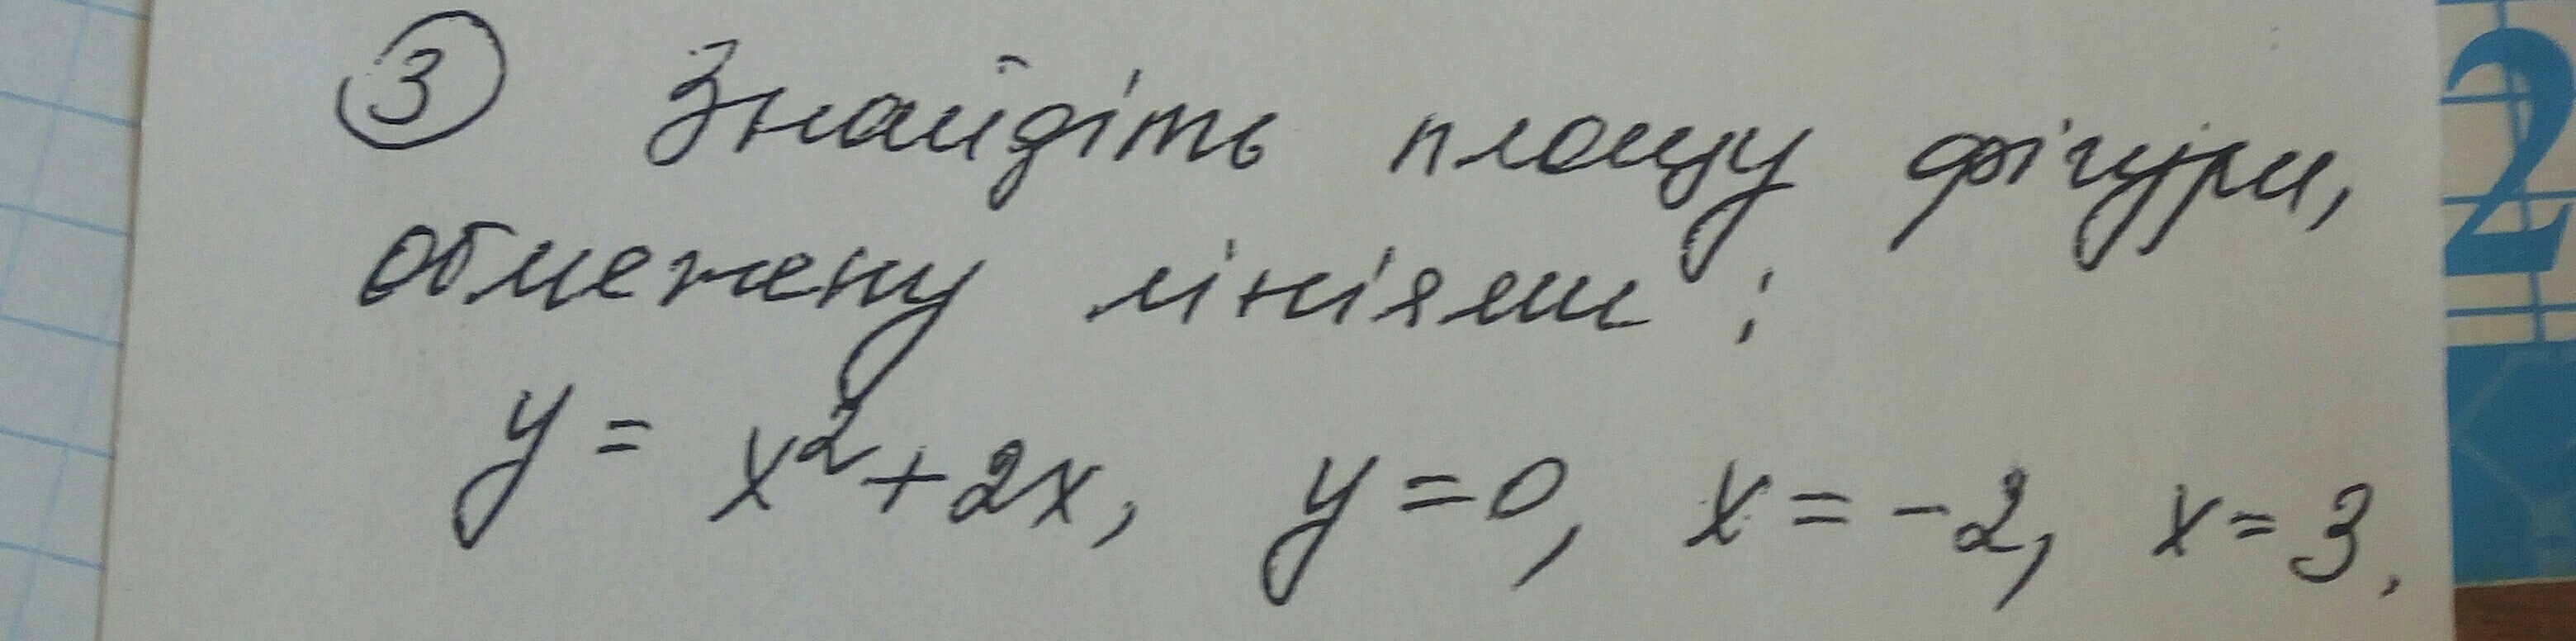 3 Знайдіть площу фігури,
обмежену лініями:
y = x²+2x, y=0, x=-2, x=3.
2